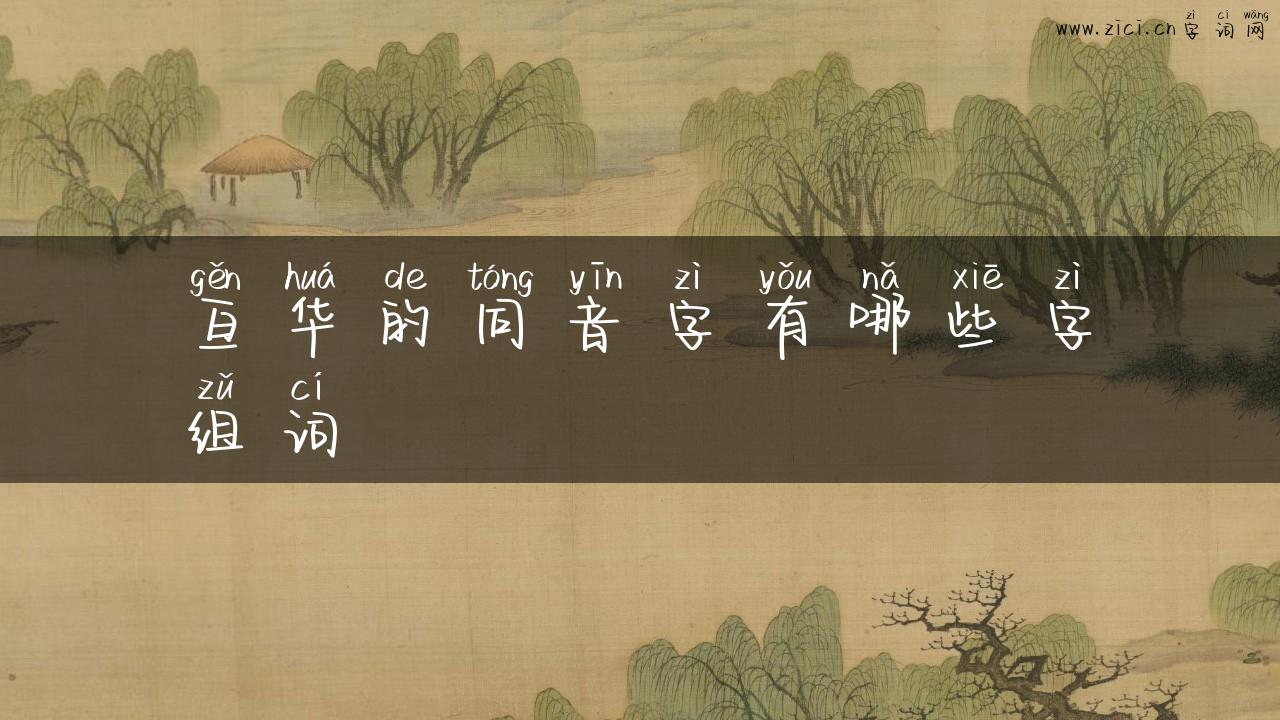 zì cí wǎng
www.zici.cn 字词网
gěn huá de tóng yīn zì yǒu nǎ xiē zì
亘华的同音字有哪些字
zǔ cí
组词